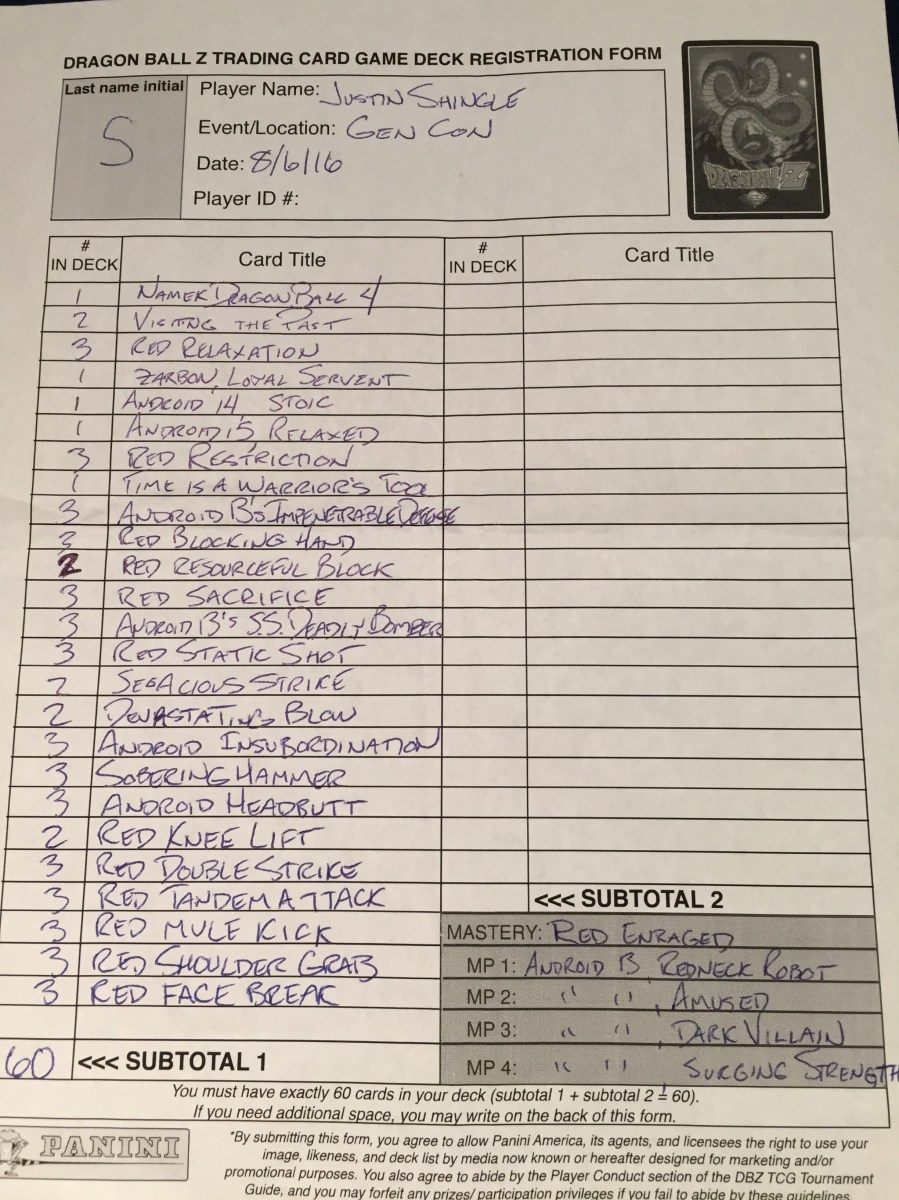 DRAGON BALL Z TRADING CARD GAME DECK REGISTRATION FORM
Last name initial
S
Player Name: JUSTIN SHINGLE
Event/Location: GEN CON
Date: 8/6/16
Player ID #:
DRAGONBALL Z
# IN DECK Card Title # IN DECK Card Title
1 NAMEK DRAGON BALL 4
2 VISITING THE PAST
3 RED RELAXATION
1 ZARBON, LOYAL SERVENT
1 ANDROID 14 STOIC
1 ANDROID 15, RELAXED
3 RED RESTRICTION
1 TIME IS A WARRIOR'S TOOL
3 ANDROID 13'S IMPENETRABLE DEFENSE
3 RED BLOCKING HAND
2 RED RESOURCEFUL BLOCK
3 RED SACRIFICE
3 ANDROID 13'S S.S. DEADLY BOMBER
3 RED STATIC SHOT
2 SEGACIOUS STRIKE
2 DEVASTATING BLOW
3 ANDROID INSUBORDINATION
3 SOBERING HAMMER
3 ANDROID HEADBUTT
2 RED KNEE LIFT
3 RED DOUBLE STRIKE
3 RED TANDEM ATTACK
3 RED MULE KICK
3 RED SHOULDER GRAB
3 RED FACE BREAK
60 <<< SUBTOTAL 1
<<< SUBTOTAL 2
MASTERY: RED ENRAGED
MP 1: ANDROID 13, REDNECK ROBOT
MP 2: " ", AMUSED
MP 3: " ", DARK VILLAIN
MP 4: " " SURGING STRENGTH
You must have exactly 60 cards in your deck (subtotal 1 + subtotal 2 = 60).
If you need additional space, you may write on the back of this form.
PANINI
*By submitting this form, you agree to allow Panini America, its agents, and licensees the right to use your
image, likeness, and deck list by media now known or hereafter designed for marketing and/or
promotional purposes. You also agree to abide by the Player Conduct section of the DBZ TCG Tournament
Guide, and you may forfeit any prizes/ participation privileges if you fail to abide by these guidelines.